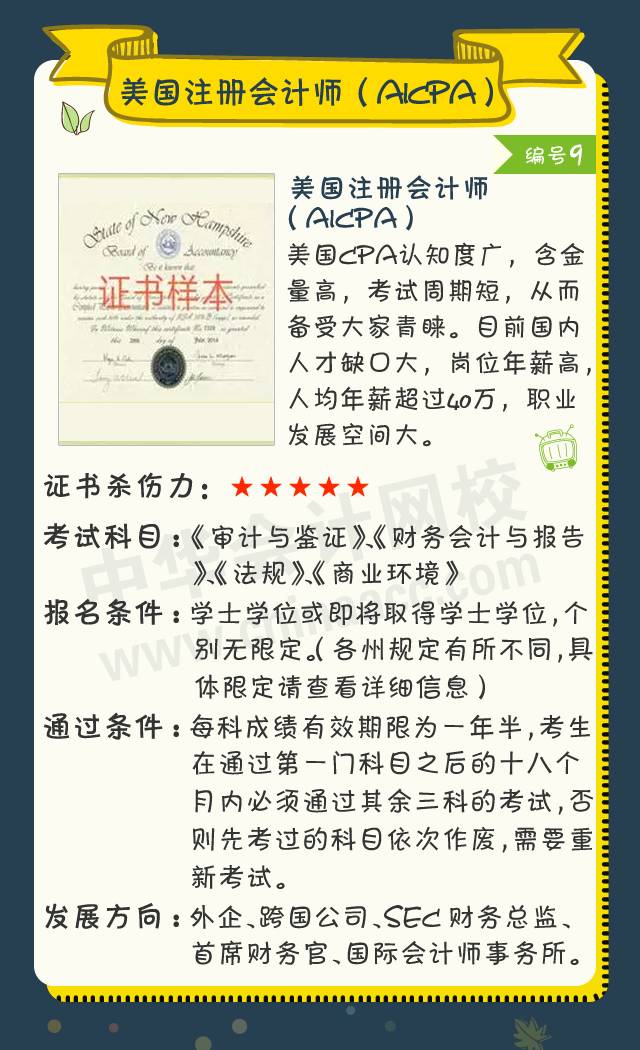 美国注册会计师（AICPA）
编号9
State of New Hampshire
Board of Accountancy
Be it known that
证书样本
美国注册会计师
（AICPA）
美国CPA认知度广，含金
量高，考试周期短，从而
备受大家青睐。目前国内
人才缺口大，岗位年薪高，
人均年薪超过40万，职业
发展空间大。
证书杀伤力：★★★★★
考试科目：《审计与鉴证》、《财务会计与报告
》、《法规》、《商业环境》
报名条件：学士学位或即将取得学士学位，个
别无限定。（各州规定有所不同，具
体限定请查看详细信息）
通过条件：每科成绩有效期限为一年半，考生
在通过第一门科目之后的十八个
月内必须通过其余三科的考试，否
则先考过的科目依次作废，需要重
新考试。
发展方向：外企、跨国公司、SEC财务总监、
首席财务官、国际会计师事务所。
中华会计网校
www.chinaacc.com